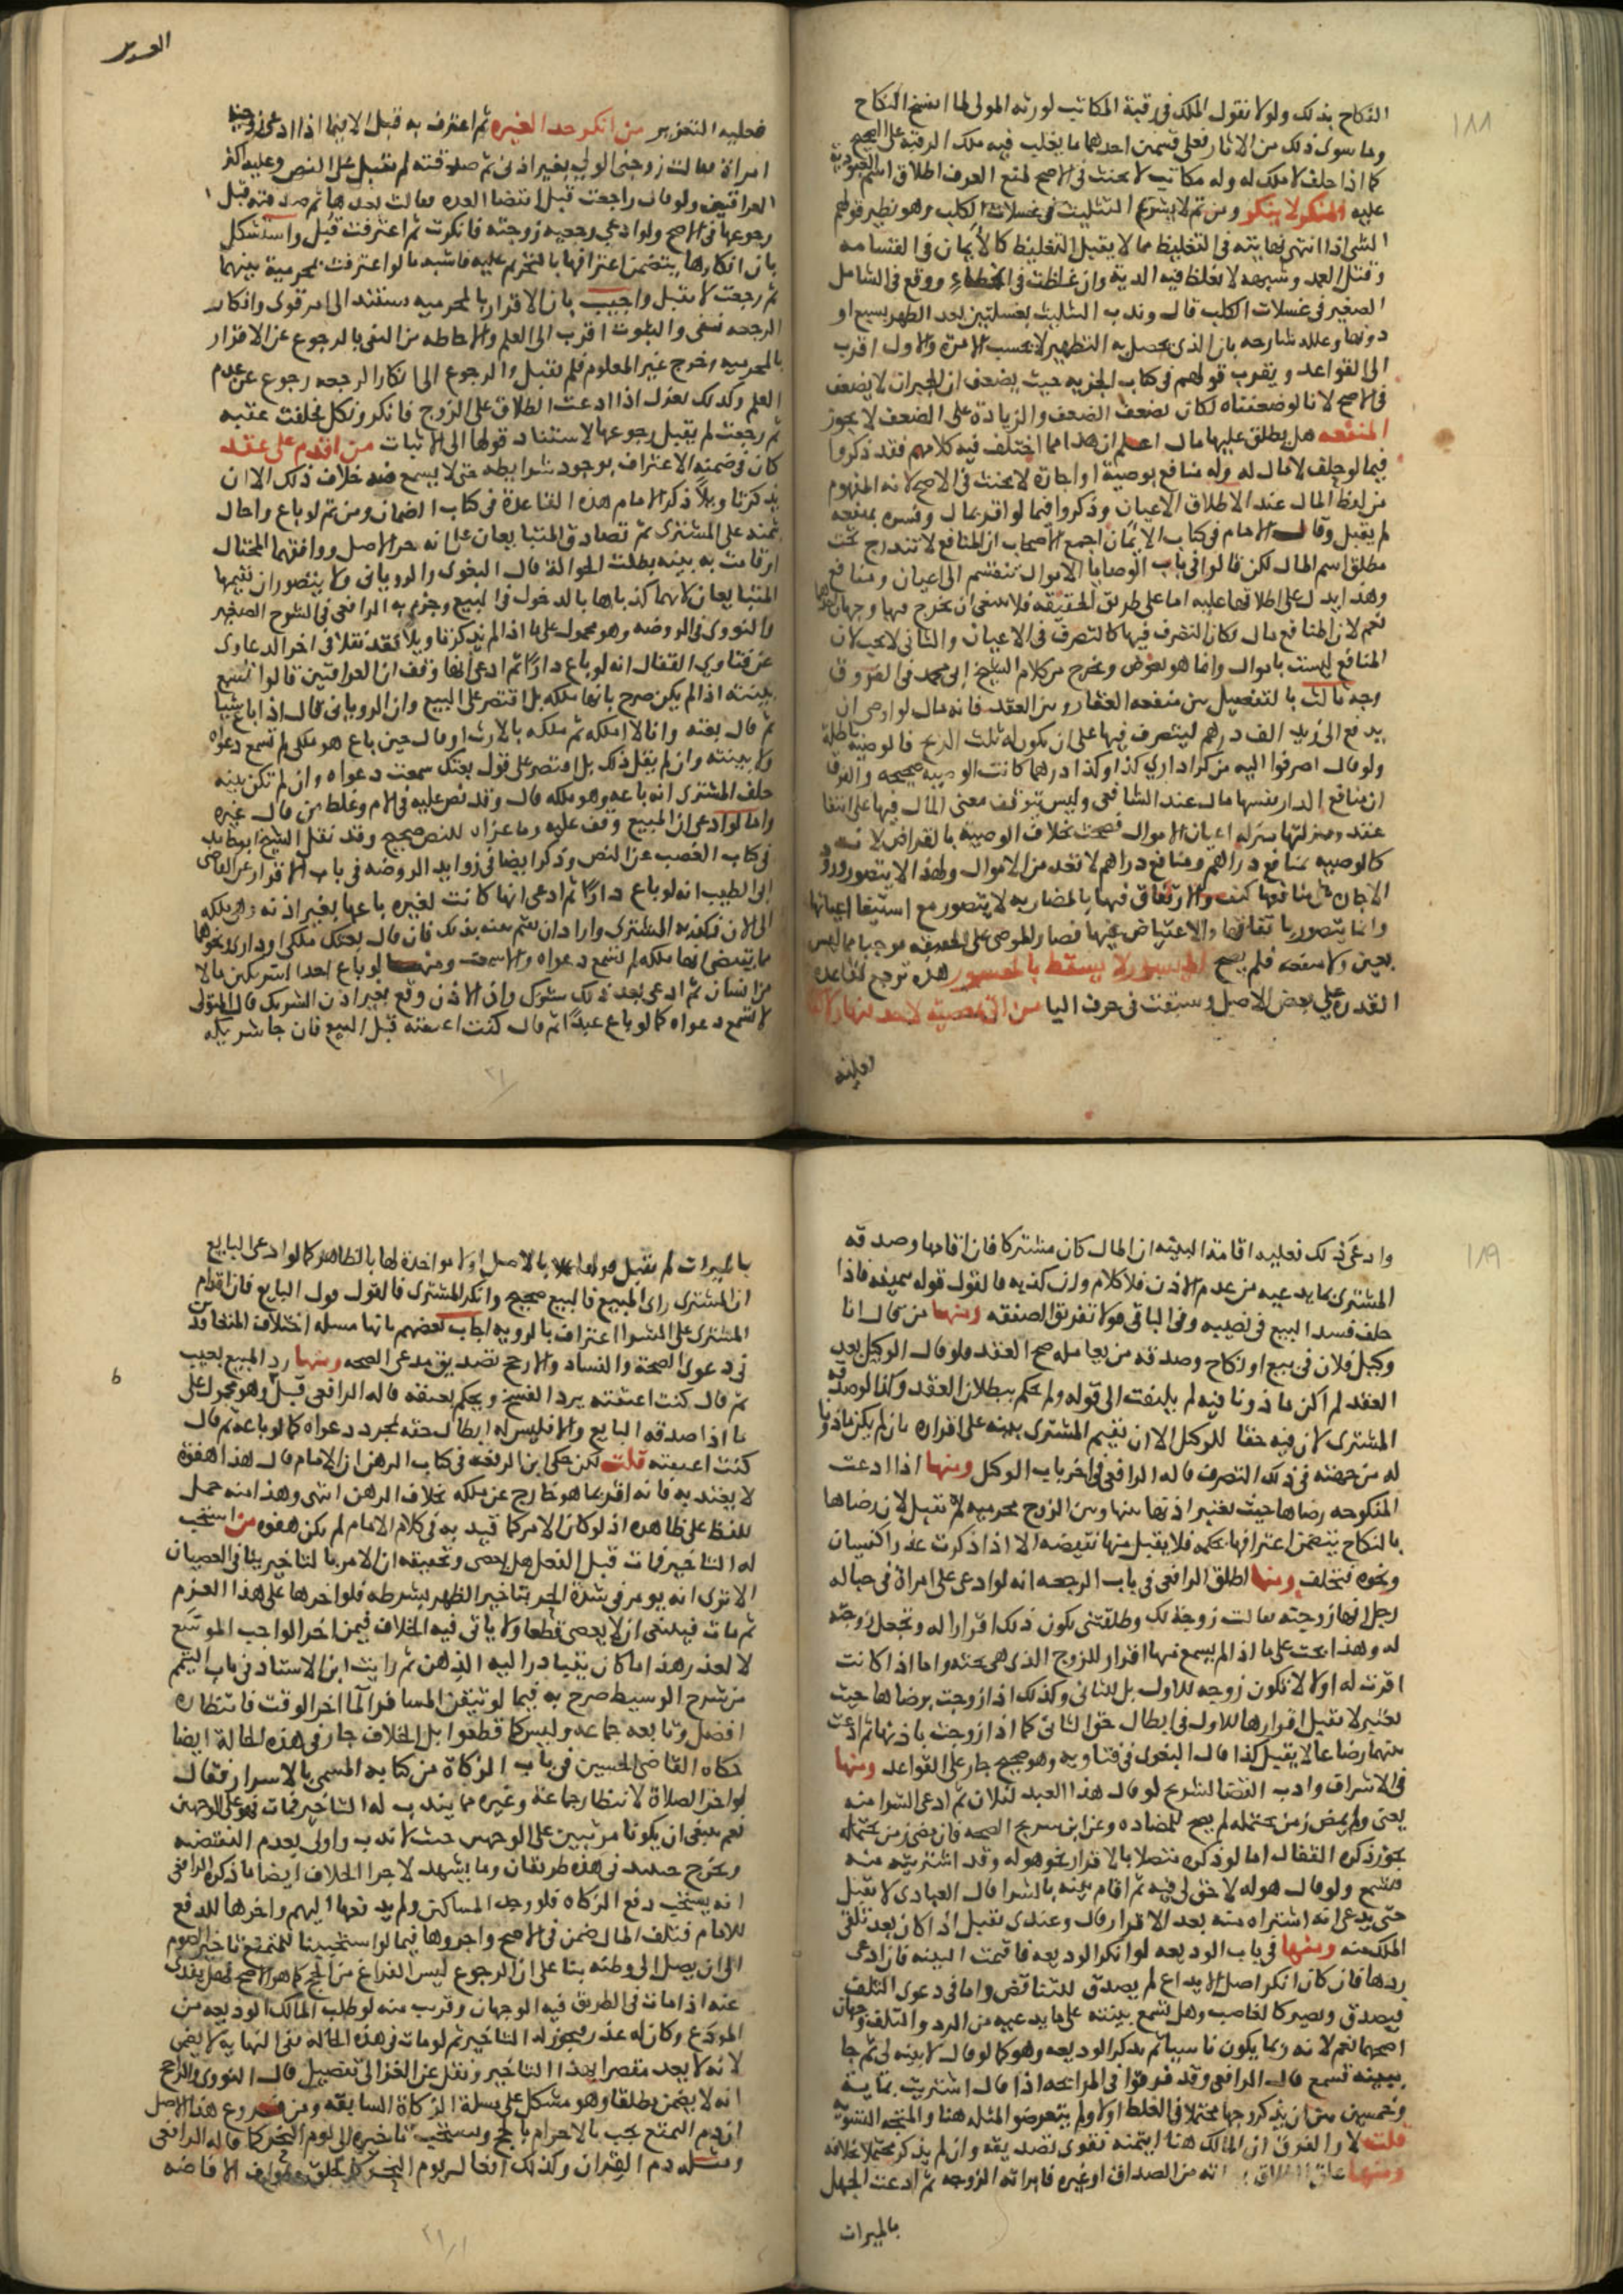 ١٨٨
النكاح بذلك ولولا نقول الملك في رقبة المكاتب لورثه المولى لما انفسخ النكاح
وما سوى ذلك من الاثار فعلى قسمين احدهما ما يغلب فيه ملك الرقبة على الصحيح
كما اذا حلف لا ملك له وله مكاتب لا يحنث في الاصح لمنع العرف اطلاق اسم العبودية
عليه المكبر لا يكبر ومن ثم لا يشرع التثليث في غسلات الكلب وهو نظير قولهم
الشي اذا انتهى نهايته في التغليظ مما لا يقبل التغليظ كالأيمان في القسامه
وقتل العمد وشبهه لا تغلظ فيه الدية وان غلظت في الخطاء ووقع في الشامل
الصغير في غسلات الكلب قال وندب التثليث بغسلتين بعد الطهر بسبع او
دونها وعلله شارحه بان الذي يحصل به التطهير لا يحسب الا مرة والاول اقرب
الى القواعد ويقرب قولهم في كتاب الجزيه حيث يضعف ان الجبران لا يضعف
في الاصح لانا لو ضعفناه لكان تضعف الضعف والزيادة على الضعف لا يجوز
المنفعه هل يطلق عليها مال اعلم ان هذا مما اختلف فيه كلامهم فقد ذكروا
فيما لو حلف لا مال له وله منافع بوصية او اجارة لا يحنث في الاصح لانه المفهوم
من لفظ المال عند الاطلاق الاعيان وذكروا فيما لو اقر بمال وفسره بمنفعه
لم يقبل وقال الامام في كتاب الايمان اجمع الاصحاب ان المنافع لا تندرج تحت
مطلق اسم المال لكن قالوا في باب الوصايا الاموال تنقسم الى اعيان ومنافع
وهذا يدل على اطلاقها عليه اما على طريق الحقيقه فلا ينبغي ان يخرج فيها وجهان
نعم لان المنافع مال لكان التصرف فيها كالتصرف في الاعيان والثاني لا يجب لان
المنافع ليست باموال وانما هو بعوض ويخرج من كلام الشيخ ابي محمد في الفروق
وجه ثالث بالتفصيل بين منفعه العقار وبين العقد فانه قال لو اوصى ان
يدفع الى زيد الف درهم ليتصرف فيها على ان يكون له ثلث الربح فالوصية باطلة
ولو قال اصرفوا اليه من كرا داري كذا وكذا درهما كانت الوصيه صحيحه والفرق
ان منافع الدار نفسها مال عند الشافعي وليس تتوقف معنى المال فيها على ابتغا
عقد ومنزلتها منزله اعيان الاموال فصحت بخلاف الوصية بالقراض لانه
كالوصيه بمنافع دراهم ومنافع دراهم لا تعد من الاموال ولهذا لا يتصور ورود
وانما يتصور باتفاقها والاعتياض عنها فصار الموصى على الحقيقه موجبا ما ليس
بعين ولا منفعه فلم يصح الميسور لا يسقط بالمعسور هذه ترجع لقاعدة
القدرة على بعض الاصل وسبقت في حرف البا من اتى معصية لا حد فيها ولا كفارة
فعليه التعزير من انكر حدا لغيره ثم اعترف به قبل الا فيما اذا ادعى زوجية
امراة فقالت زوجني الولي بغير اذني ثم صدقته لم تقبل على النص وعليه اكثر
العراقيين ولو قال راجعت قبل انقضا العده فقالت بعدها ثم صدقته قبل
رجوعها في الاصح ولو ادعى رجعيه زوجته فانكرت ثم اعترفت قبل واستشكل
بان انكارها يتضمن اعترافها بالتحريم عليه فاشبه ما لو اعترفت بمحرمية بينهما
ثم رجعت لا يقبل واجيب بان الاقرار بالمحرميه مستند الى امر قوي وانكار
الرجعه نفي والثبوت اقرب الى العلم والاحاطه من النفي بالرجوع عن الاقرار
بالمحرميه رجوع غير المعلوم فلم تقبل والرجوع الى انكار الرجعه رجوع عن عدم
العلم وكذلك نقول اذا ادعت الطلاق على الزوج فانكر ونكل فحلفت عقبه
ثم رجعت لم يقبل رجوعها لاستناد قولها الى الاثبات من اقدم على عقد
كان في ضمنه الاعتراف بوجود شرايطه حتى لا يسمع منه خلاف ذلك الا ان
يذكر تاويلاً ذكر الامام هذه القاعدة في كتاب الضمان ومن ثم لو باع واحال
بثمنه على المشتري ثم تصادق المتبايعان على انه حر الاصل ووافقهما المحتال
او قامت به بينه بطلت الحوالة قال البغوي والروياني ولا يتصور ان يقيمها
المتبايعان لانهما كذباها بالدخول في البيع وجزم به الرافعي في الشرح الصغير
والنووي في الروضه وهو محمول على ما اذا لم يذكرا تاويلاً فقد نقلا في اخر الدعاوى
عن فتاوي القفال انه لو باع دارًا ثم ادعى انها وقف ان العراقيين قالوا تسمع
بينته اذا لم يكن صرح بانها ملكه بل اقتصر على البيع وان الروياني قال اذا باع شيا
ثم قال بعته وانا لا املكه ثم ملكه بالارث او قال حين باع هو ملكي لم تسمع دعواه
ولا بينته وان لم يقل ذلك بل اقتصر على قول بعتك سمعت دعواه وان لم تكن بينه
حلف المشتري انه باعه وهو ملكه قال وقد نص عليه في الام وغلط من قال غيره
واما لو ادعى ان المبيع وقف عليه وما عزاه للنص صحيح وقد نقل الشيخ ابو حامد
في كتاب الغصب عن النص وذكر ايضا في زوايد الروضه في باب الاقرار عن القاضي
ابي الطيب انه لو باع دارًا ثم ادعى انها كانت لغيره باعها بغير اذنه وهي ملكه
الى الان فكذبه المشتري واراد ان يقيم بينه بذلك فان قال بعتك ملكي او داري او نحوهما
مما يقتضي انها ملكه لم تسمع دعواه والا سمعت ومنها لو باع احد الشريكين مالا
من انسان ثم ادعى بعد ذلك شرك وان الاذن وقع بغير اذن الشريك قال المتولي
لا تسمع دعواه كما لو باع عبدًا ثم قال كنت اعتقته قبل البيع فان جا شريكه
١٨٩
وادعى ذلك فعليه اقامة البينه ان المال كان مشتركا فان اقامها وصدقه
المشتري بما يدعيه من عدم الاذن فلا كلام وان كذبه فالقول قوله بيمينه فاذا
حلف فسد البيع في نصيبه وفي الباقي قولا تفريق الصفقه ومنها من قال انا
وكيل فلان في بيع او نكاح وصدقه من يعامله صح العقد فلو قال الوكيل بعد
العقد لم اكن ماذونا فيه لم يلتفت الى قوله ولم يحكم ببطلان العقد وكذا لو صدقه
المشتري لان فيه حقا للوكل الا ان يقيم المشتري بينه على اقراره بان لم يكن ماذونا
له من جهته في ذلك التصرف قاله الرافعي في اخر باب الوكل ومنها اذا ادعت
المنكوحه رضاها حيث يعتبر اذنها بينها وبين الزوج محرميه لا تقبل لان رضاها
بالنكاح يتضمن اعترافها بحكمه فلا يقبل منها نقيضه الا اذا ذكرت عذرا كنسيان
ونحوه فتحلف ومنها اطلق الرافعي في باب الرجعه انه لو ادعى على امراة في حباله
رجل انها زوجته فقالت زوجة لك وطلقتني يكون ذلك اقرارا له وتجعل زوجته
له وهذا يحث على ما اذا لم يسمع منها اقرار للزوج الذي هي تحته واما اذا كانت
اقرت له اولا لا تكون زوجه للاول بل للثاني وكذلك اذا زوجت برضاها حيث
يعتبر لا تقبل اقرارها للاول في ابطال حق الثاني كما اذا زوجت باذنها ثم ادعت
بينهما رضاعا لا يقبل كذا قال البغوي في فتاويه وهو صحيح جار على القواعد ومنها
في الاشراف وادب القضا لشريح لو قال هذا العبد لفلان ثم ادعى الشرا منه
يعني ولم يمض زمن يحتمله لم يصح للمضاده وعن ابن سريج الصحه فان مضى زمن يحتمله
يجوز ذكره القفال اما لو ذكره متصلا بالاقرار نحو هو له وقد اشتريته منه
فتسمع ولو قال هو له لا حق لي فيه ثم اقام بينه بالشرا قال العبادي لا تقبل
حتى يدعي انه اشتراه منه بعد الاقرار قال وعندي تقبل اذا كان بعد تلقى
الملك منه ومنها في باب الوديعه لو انكر الوديعه فاقيمت البينه فان ادعى
ردها فان كان انكر اصل الايداع لم يصدق للتناقض واما في دعوى التلف
فيصدق ويصير كالغاصب وهل تسمع بينته على ما يدعيه من الرد والتلف وجهان
اصحهما نعم لانه ربما يكون ناسيا ثم يذكر الوديعه وهو كما لو قال لا بينه لي ثم جا
ببينه تسمع قال الرافعي وقد فرقوا في المرابحه اذا قال اشتريت بمايه
وخمسين بين ان يذكر وجها محتملا في الغلط اولا ولم يتعرضوا لمثله هنا والمتجه التسويه
قلت لا والفرق ان المالك هنا ايتمنه فقوى تصديقه وان لم يذكر محتملا بخلافه
من الصداق او غيره فابراته الزوجه ثم ادعت الجهل
بالميراث
ان المشتري راى المبيع فالبيع صحيح وانكر المشتري فالقول قول البايع فان اقدام
المشتري على الشرا اعتراف بالرويه اجاب بعضهم بانها مسله اختلاف المتعاقدين
في دعوى الصحة والفساد والارجح تصديق مدعي الصحه ومنها رد المبيع بعيب
ثم قال كنت اعتقته يرد الفسخ ويحكم بعتقه قاله الرافعي قبل وهو محمول على
ما اذا صدقه البايع والا فليس له ابطال حقه بمجرد دعواه كما لو باعه ثم قال
كنت اعتقته قلت لكن حكى ابن الرفعه في كتاب الرهن ان الامام قال هذا هفوة
لا يعتد به فانه اقر بما هو خارج عن ملكه بخلاف الرهن انتهى وهذا منه حمل
للفظ على ظاهره اذ لو كان الامر كما قيد به في كلام الامام لم يكن هفوه من استحب
له التاخير فمات قبل الفعل هل يعصي وتحقيقه ان الامر بالتاخير ينافي العصيان
الا ترى انه يومر في شدة الحر بتاخير الظهر بشرطه فلو اخرها على هذا العزم
ثم مات فينبغي ان لا يعصي قطعا ولا ياتي فيه الخلاف فيمن اخر الواجب الموسع
لا لعذر هذا ما كان يتبادر اليه الذهن ثم رايت ابن الاستاذ في باب التيمم
من شرح الوسيط صرح به فيما لو تيقن المسافر الما اخر الوقت فانتظاره
افضل وتابعه جماعه وليس كما قطعوا بل الخلاف جار في هذه الحالة ايضا
حكاه القاضي الحسين في باب الزكاة من كتابه المسمى بالاسرار فقال
لو اخر الصلاة لانتظار جماعة وغيره مما يندب له التاخير فمات فهو على الوجهين
نعم ينبغي ان يكونا مرتبين على الوجهين حيث لا ندب واولى بعدم التعصيه
ويخرج حينئذ في هذه طريقان ومما يشهد لاجرا الخلاف ايضا ما ذكره الرافعي
انه يستحب دفع الزكاه فلو وجد المساكين ولم يدفعها اليهم واخرها للدفع
للامام فتلف المال ضمن في الاصح واجروها فيما لو استحببنا للمتمتع تاخير الصوم
الى ان يصل الى وطنه بنا على ان الرجوع ليس الفراغ من الحج كما هو الاصح فهل يفدى
عنه اذا مات في الطريق فيه الوجهان وقرب منه لو طلب المالك الوديعه من
المودع وكان له عذر فيجوز له التاخير ثم لو مات في هذه الحالة ففي النهايه لا يضمن
لانه لا يعد مقصرا بهذا التاخير ونقل عن الغزالي تفصيل قال النووي والراجح
انه لا يضمن مطلقا وهو مشكل على مسلة الزكاة السابقه ومن فروع هذا الاصل
ان دم التمتع يجب بالاحرام بالحج ويستحب تاخيره الى يوم النحر كما قاله الرافعي
ومثله دم القران وكذلك افعال يوم النحر كالحلق وطواف الافاضه